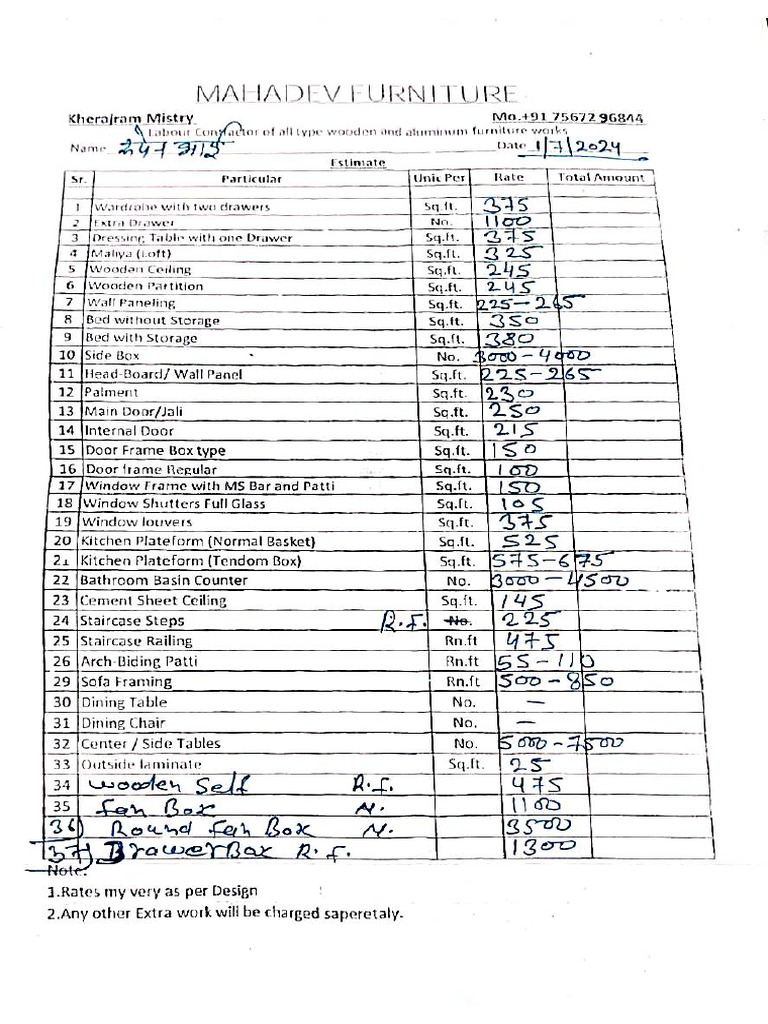 MAHADEV FURNITURE
Kherajram Mistry Mo.+91 75672 96844
Labour Contractor of all type wooden and aluminum furniture works
Name Date 1/7/2024
Estimate
Sr. Particular Unit Per Rate Total Amount
1 Wardrobe with two drawers Sq.ft. 375
2 Extra Drawer No. 1100
3 Dressing Table with one Drawer Sq.ft. 375
4 Maliya (Loft) Sq.ft. 325
5 Wooden Ceiling Sq.ft. 245
6 Wooden Partition Sq.ft. 245
7 Wall Paneling Sq.ft. 225-265
8 Bed without Storage Sq.ft. 350
9 Bed with Storage Sq.ft. 380
10 Side Box No. 3000-4000
11 Head-Board/ Wall Panel Sq.ft. 225-265
12 Palment Sq.ft. 230
13 Main Door/Jali Sq.ft. 250
14 Internal Door Sq.ft. 215
15 Door Frame Box type Sq.ft. 150
16 Door frame Regular Sq.ft. 100
17 Window Frame with MS Bar and Patti Sq.ft. 150
18 Window Shutters Full Glass Sq.ft. 105
19 Window louvers Sq.ft. 375
20 Kitchen Plateform (Normal Basket) Sq.ft. 525
21 Kitchen Plateform (Tendom Box) Sq.ft. 575-675
22 Bathroom Basin Counter No. 3000-4500
23 Cement Sheet Ceiling Sq.ft. 145
24 Staircase Steps R.f. No. 225
25 Staircase Railing Rn.ft 475
26 Arch-Biding Patti Rn.ft 55-110
29 Sofa Framing Rn.ft 500-850
30 Dining Table No. -
31 Dining Chair No. -
32 Center / Side Tables No. 5000-7500
33 Outside laminate Sq.ft. 25
34 wooden Self R.f. 475
35 fan Box N. 1100
36) Round fan Box N. 3500
37) Drawer Box R.f. 1300
Note:
1.Rates my very as per Design
2.Any other Extra work will be charged saperetaly.